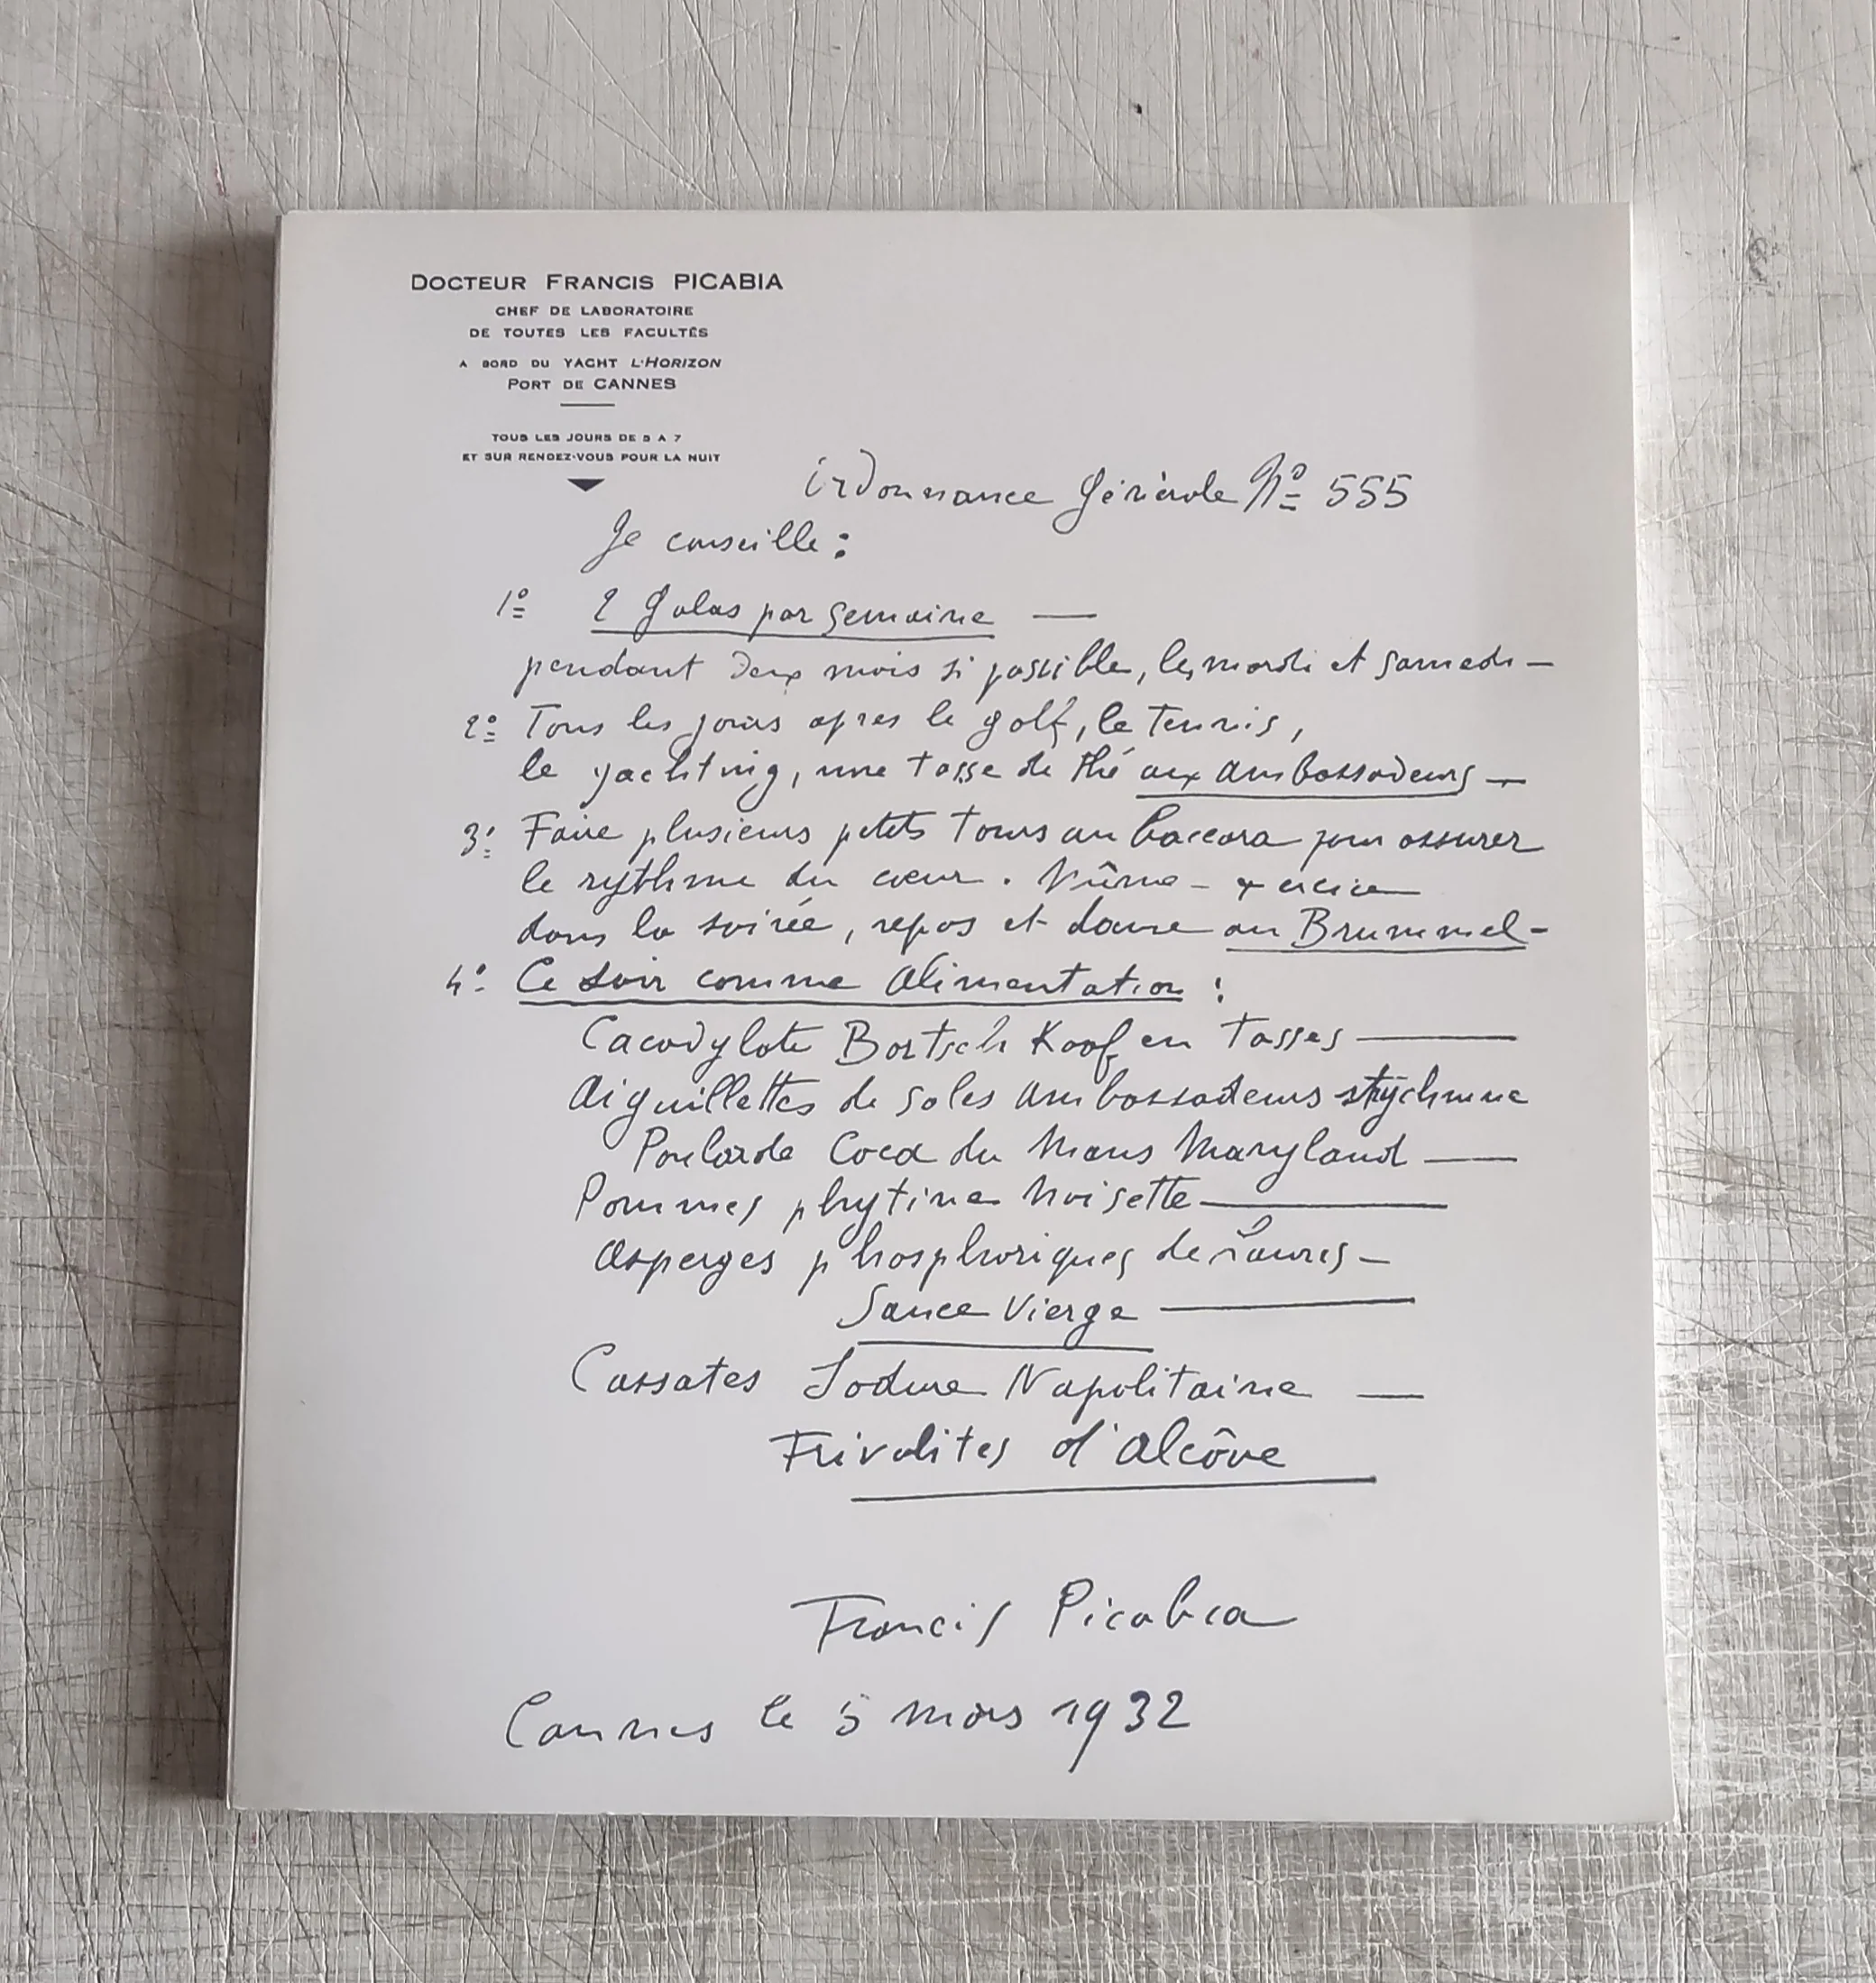 DOCTEUR FRANCIS PICABIA
CHEF DE LABORATOIRE
DE TOUTES LES FACULTÉS
A BORD DU YACHT L'HORIZON
PORT DE CANNES
TOUS LES JOURS DE 5 A 7
ET SUR RENDEZ-VOUS POUR LA NUIT
Ordonnance Générale No 555
Je conseille :
1o 2 Galas par semaine —
pendant deux mois si possible, les mardi et samedi —
2o Tous les jours apres le golf, le Tennis,
le yachting, une tasse de thé aux Ambassadeurs —
3o Faire plusieurs petits tours au baccara pour assurer
le rythme du cœur. Même exercice
dans la soirée, repos et danse au Brummel —
4o Ce soir comme alimentation :
Cacodylate Bortsch Koop en Tasses —
Aiguillettes de soles Ambassadeurs strychnine
Poularde Coca du Mans Maryland —
Pommes phytine Noisette —
Asperges phosphoriques de —
Sauce Vierge —
Cassates Iodure Napolitaine —
Frivolites d'Alcôve
Francis Picabia
Cannes le 5 mars 1932